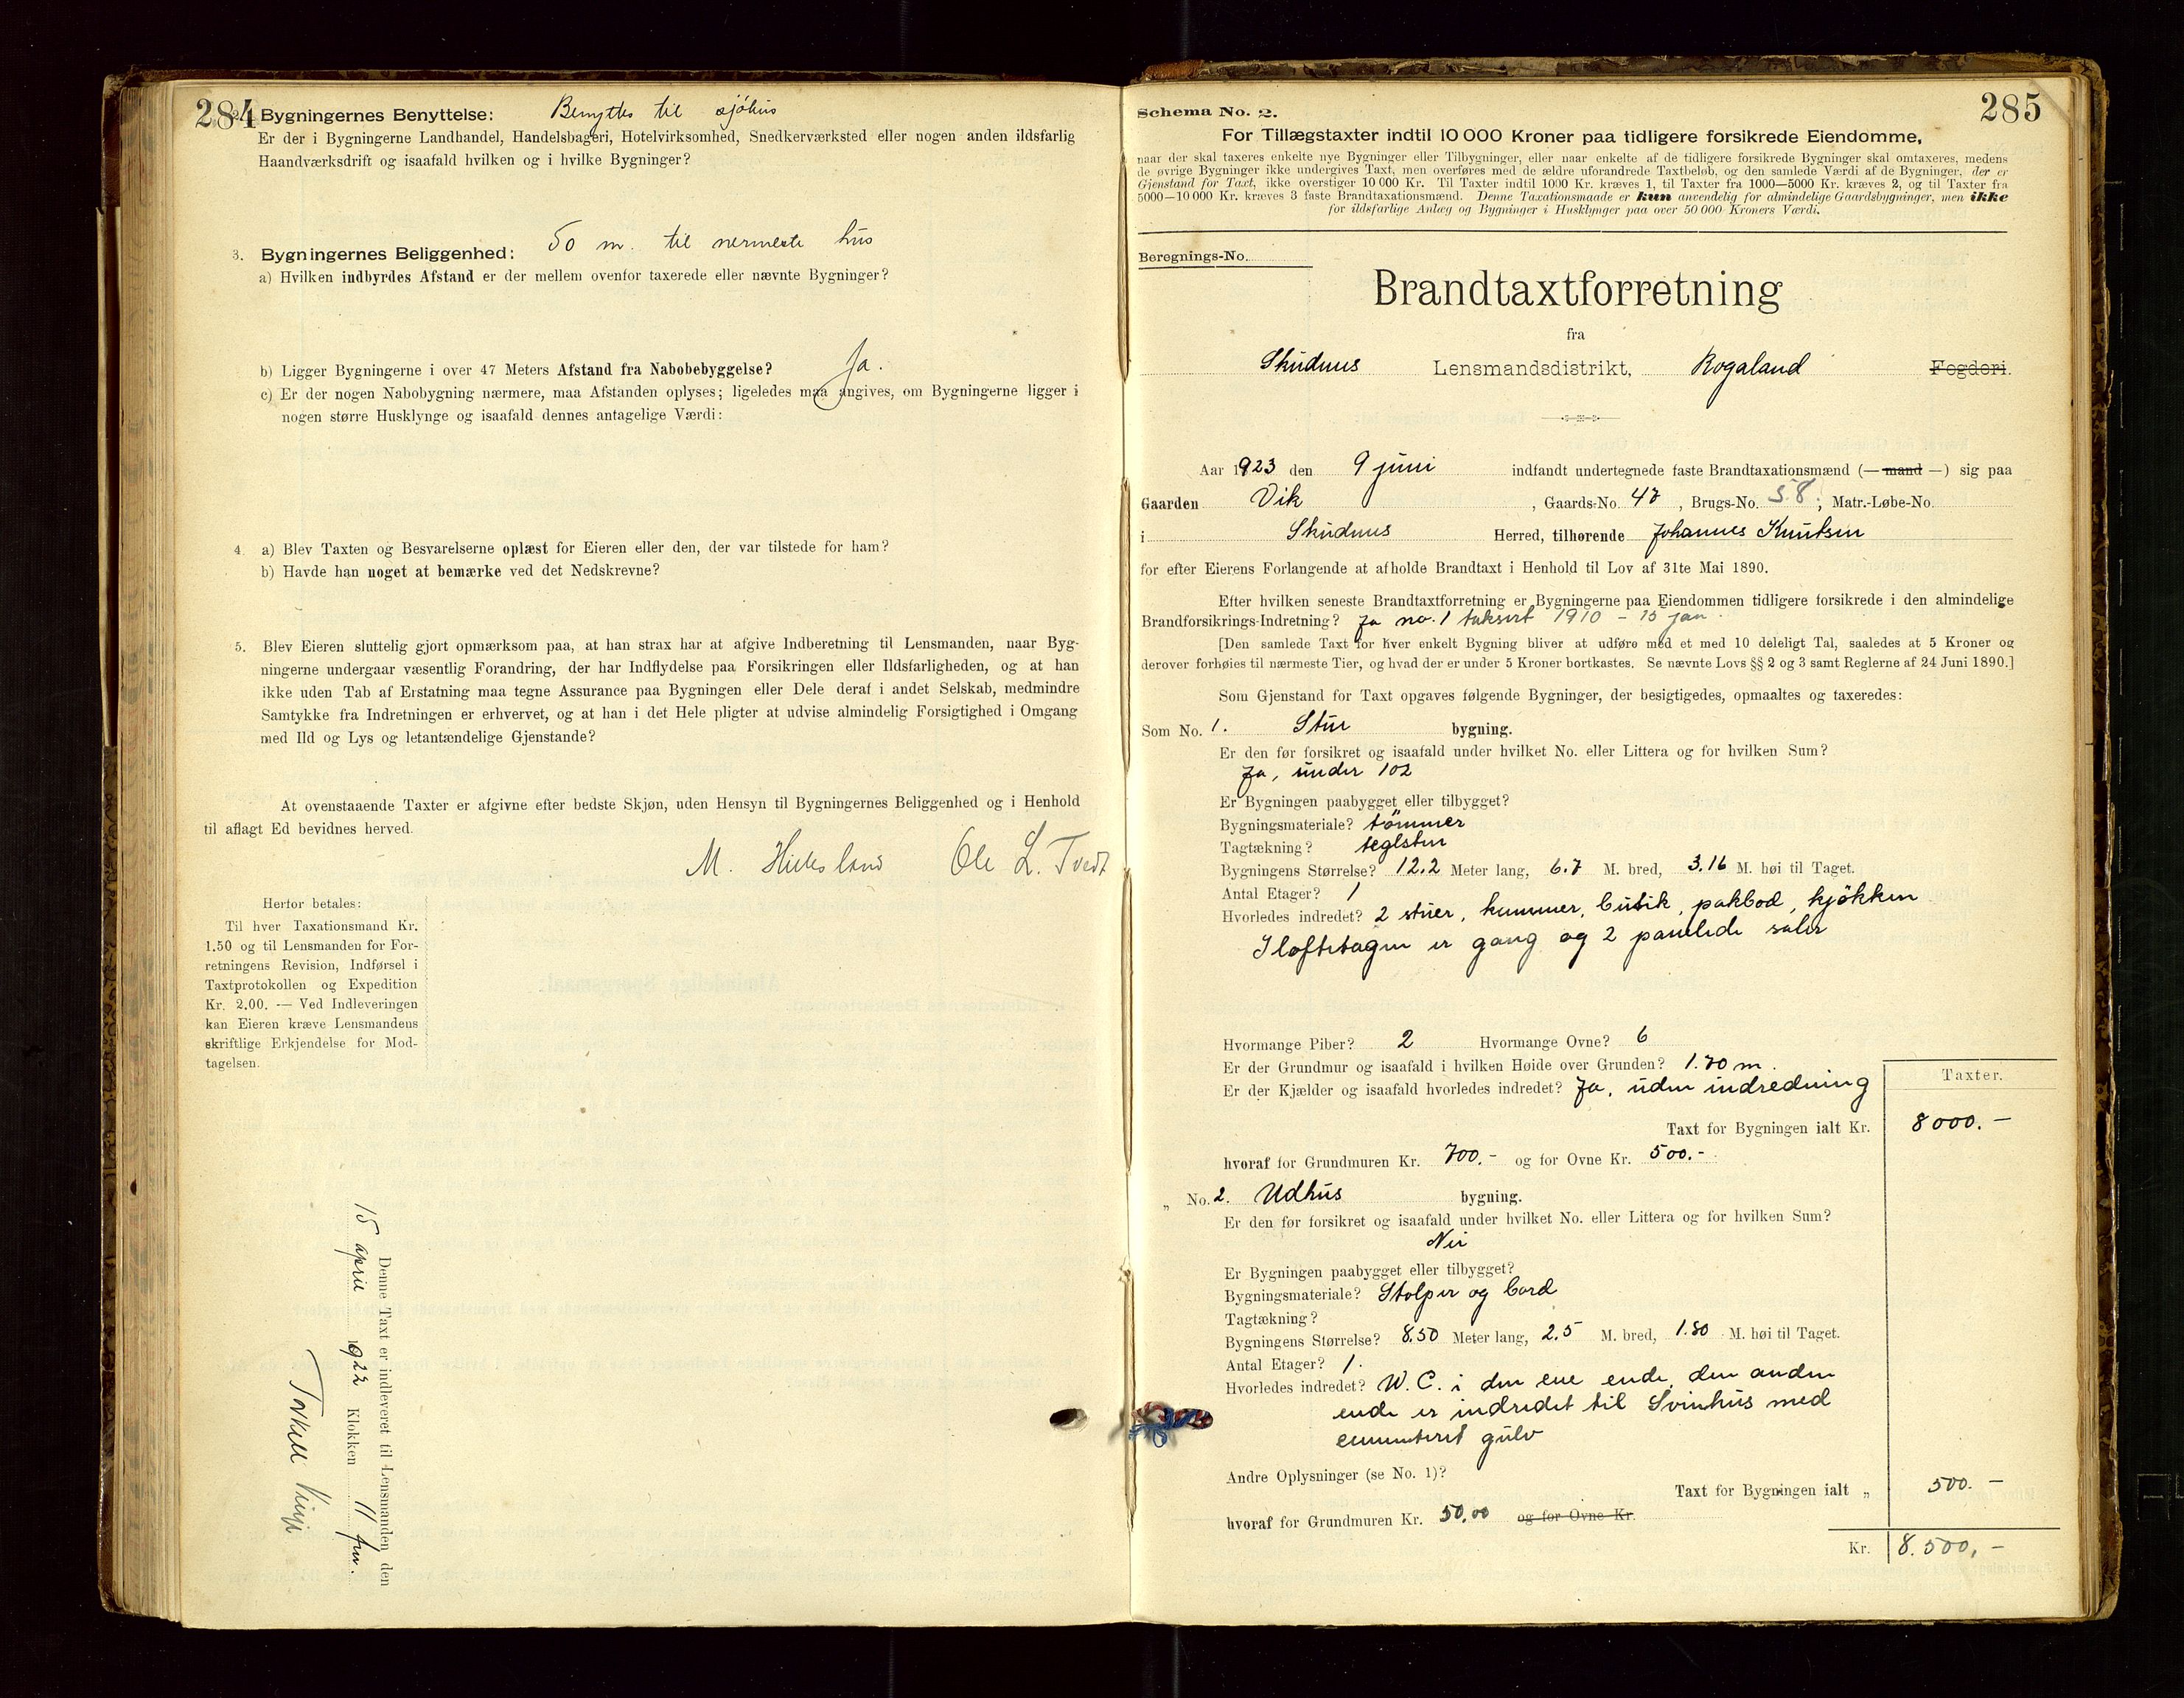 284
2. Bygningernes Benyttelse: Benyttes til sjöhus
Er der i Bygningerne Landhandel, Handelsbageri, Hotelvirksomhed, Snedkerværksted eller nogen anden ildsfarlig
Haandværksdrift og isaafald hvilken og i hvilke Bygninger?
3. Bygningernes Beliggenhed: 50 m. til nermeste hus
a) Hvilken indbyrdes Afstand er der mellem ovenfor taxerede eller nævnte Bygninger?
b) Ligger Bygningerne i over 47 Meters Afstand fra Nabobebyggelse? Ja.
c) Er der nogen Nabobygning nærmere, maa Afstanden oplyses; ligeledes maa angives, om Bygningerne ligger i
nogen større Husklynge og isaafald dennes antagelige Værdi:
4. a) Blev Taxten og Besvarelserne oplæst for Eieren eller den, der var tilstede for ham?
b) Havde han noget at bemærke ved det Nedskrevne?
5. Blev Eieren sluttelig gjort opmærksom paa, at han strax har at afgive Indberetning til Lensmanden, naar Byg-
ningerne undergaar væsentlig Forandring, der har Indflydelse paa Forsikringen eller Ildsfarligheden, og at han
ikke uden Tab af Erstatning maa tegne Assurance paa Bygningen eller Dele deraf i andet Selskab, medmindre
Samtykke fra Indretningen er erhvervet, og at han i det Hele pligter at udvise almindelig Forsigtighed i Omgang
med Ild og Lys og letantændelige Gjenstande?
At ovenstaaende Taxter er afgivne efter bedste Skjøn, uden Hensyn til Bygningernes Beliggenhed og i Henhold
til aflagt Ed bevidnes herved.
M. Hillesland Ole L. Tvedt
Herfor betales:
Til hver Taxationsmand Kr.
1.50 og til Lensmanden for For-
retningens Revision, Indførsel i
Taxtprotokollen og Expedition
Kr. 2.00. — Ved Indleveringen
kan Eieren kræve Lensmandens
skriftlige Erkjendelse for Mod-
tagelsen.
Denne Taxt er indleveret til Lensmanden den
15 april 1922 Klokken 11 fm.
Torkell
285
Schema No. 2.
For Tillægstaxter indtil 10 000 Kroner paa tidligere forsikrede Eiendomme,
naar der skal taxeres enkelte nye Bygninger eller Tilbygninger, eller naar enkelte af de tidligere forsikrede Bygninger skal omtaxeres, medens
de øvrige Bygninger ikke undergives Taxt, men overføres med de ældre uforandrede Taxtbeløb, og den samlede Værdi af de Bygninger, der er
Gjenstand for Taxt, ikke overstiger 10 000 Kr. Til Taxter indtil 1000 Kr. kræves 1, til Taxter fra 1000—5000 Kr. kræves 2, og til Taxter fra
5000—10 000 Kr. kræves 3 faste Brandtaxationsmænd. Denne Taxationsmaade er kun anvendelig for almindelige Gaardsbygninger, men ikke
for ildsfarlige Anlæg og Bygninger i Husklynger paa over 50 000 Kroners Værdi.
Beregnings-No.
Brandtaxtforretning
fra
Skudnes Lensmandsdistrikt, Rogaland Fogderi.
Aar 1923 den 9 juni indfandt undertegnede faste Brandtaxationsmænd (— mand —) sig paa
Gaarden Vik, Gaards-No. 47, Brugs-No. 58; Matr.-Løbe-No.
i Skudnes Herred, tilhørende Johannes Knutsen
for efter Eierens Forlangende at afholde Brandtaxt i Henhold til Lov af 31te Mai 1890.
Efter hvilken seneste Brandtaxtforretning er Bygningerne paa Eiendommen tidligere forsikrede i den almindelige
Brandforsikrings-Indretning? Ja no. 1 taksert 1910 – 15 jan.
[Den samlede Taxt for hver enkelt Bygning bliver at udføre med et med 10 deleligt Tal, saaledes at 5 Kroner og
derover forhøies til nærmeste Tier, og hvad der er under 5 Kroner bortkastes. Se nævnte Lovs §§ 2 og 3 samt Reglerne af 24 Juni 1890.]
Som Gjenstand for Taxt opgaves følgende Bygninger, der besigtigedes, opmaaltes og taxeredes:
Som No. 1. Stue bygning.
Er den før forsikret og isaafald under hvilket No. eller Littera og for hvilken Sum?
Ja, under 102
Er Bygningen paabygget eller tilbygget?
Bygningsmateriale? tömmer
Tagtækning? teglsten
Bygningens Størrelse? 12.2 Meter lang, 6.7 M. bred, 3.16 M. høi til Taget.
Antal Etager? 1
Hvorledes indredet? 2 stuer, kammer, butik, pakbod, kjökken
I loftetagen er gang og 2 panelede saler
Hvormange Piber? 2 Hvormange Ovne? 6
Er der Grundmur og isaafald i hvilken Høide over Grunden? 1.70 m.
Er der Kjælder og isaafald hvorledes indredet? Ja, uden indredning
Taxter.
Taxt for Bygningen ialt Kr. 8000.-
hvoraf for Grundmuren Kr. 700.- og for Ovne Kr. 500.-
„ No. 2. Udhus bygning.
Er den før forsikret og isaafald under hvilket No. eller Littera og for hvilken Sum?
Nei
Er Bygningen paabygget eller tilbygget?
Bygningsmateriale? Stolper og bord
Tagtækning?
Bygningens Størrelse? 8.50 Meter lang, 2.5 M. bred, 1.80 M. høi til Taget.
Antal Etager? 1.
Hvorledes indredet? W. C. i den ene ende, den anden
ende er indredet til Svinhus med
cementeret gulv
Andre Oplysninger (se No. 1)?
Taxt for Bygningen ialt „ 500.-
hvoraf for Grundmuren Kr. 50,00 og for Ovne Kr.
Kr. 8.500,-